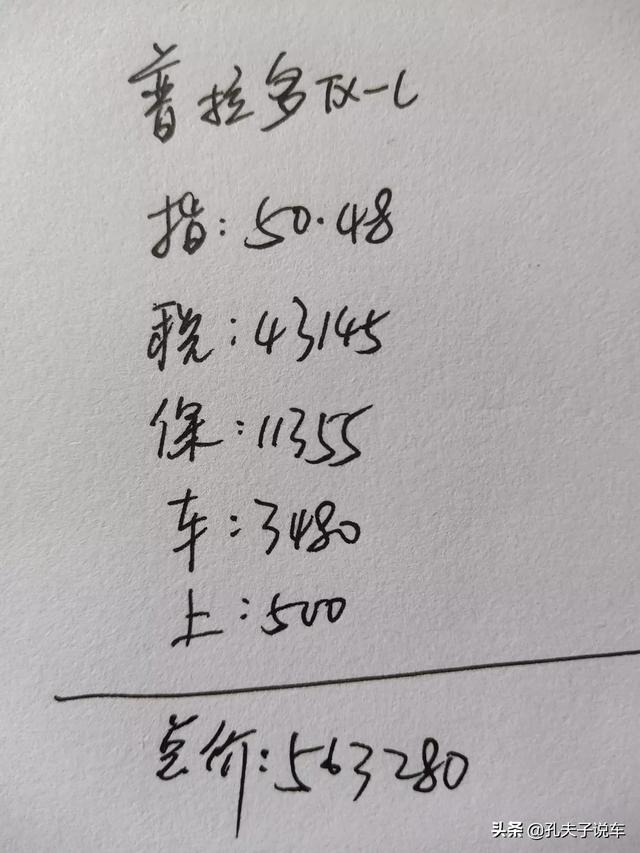 普拉多TX-L
指:50.48
税:43145
保:11355
车:3480
上:500
总价:563280
头条 @孔夫子说车